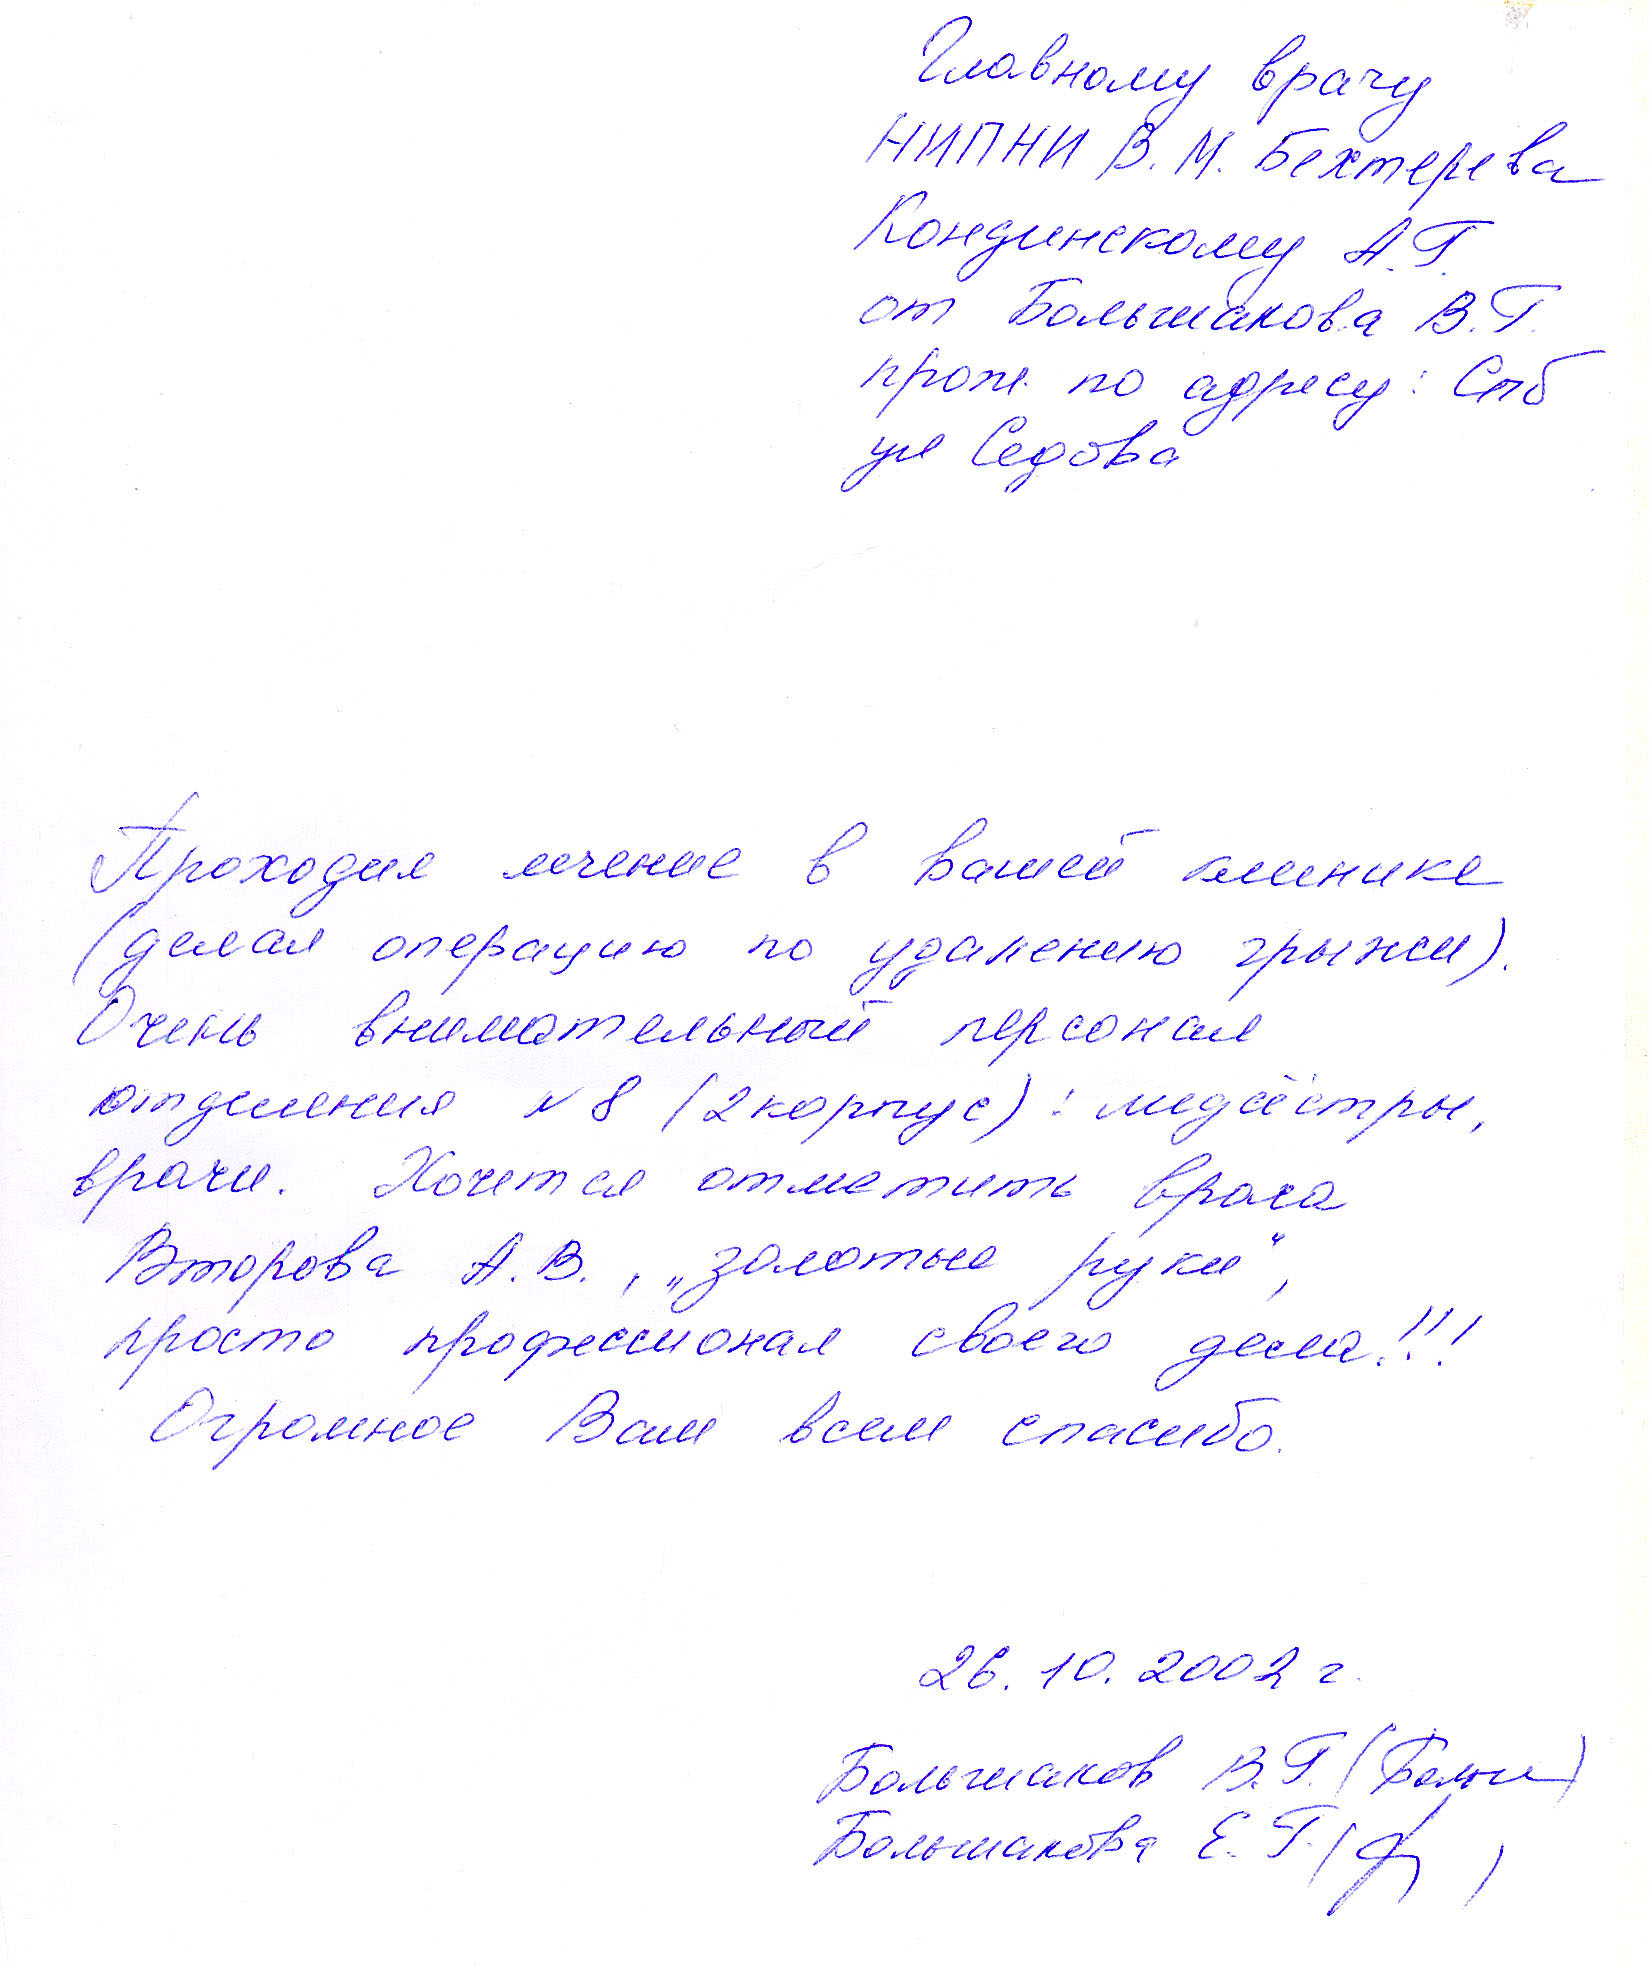 Главному врачу
НИПНИ В.М. Бехтерева
Кондинскому А.Г.
от Большакова В.Г.
прож. по адресу: Спб
ул Седова
Проходил лечение в вашей клинике
(делал операцию по удалению грыжи).
Очень внимательный персонал
отделения №8 (2корпус): медсёстры,
врачи. Хочется отметить врача
Второва А.В., „золотые руки“,
просто профессионал своего дела!!!
Огромное Вам всем спасибо.
26.10.2002 г.
Большаков В.Г. (Больш)
Большакова Е.Г. ( )